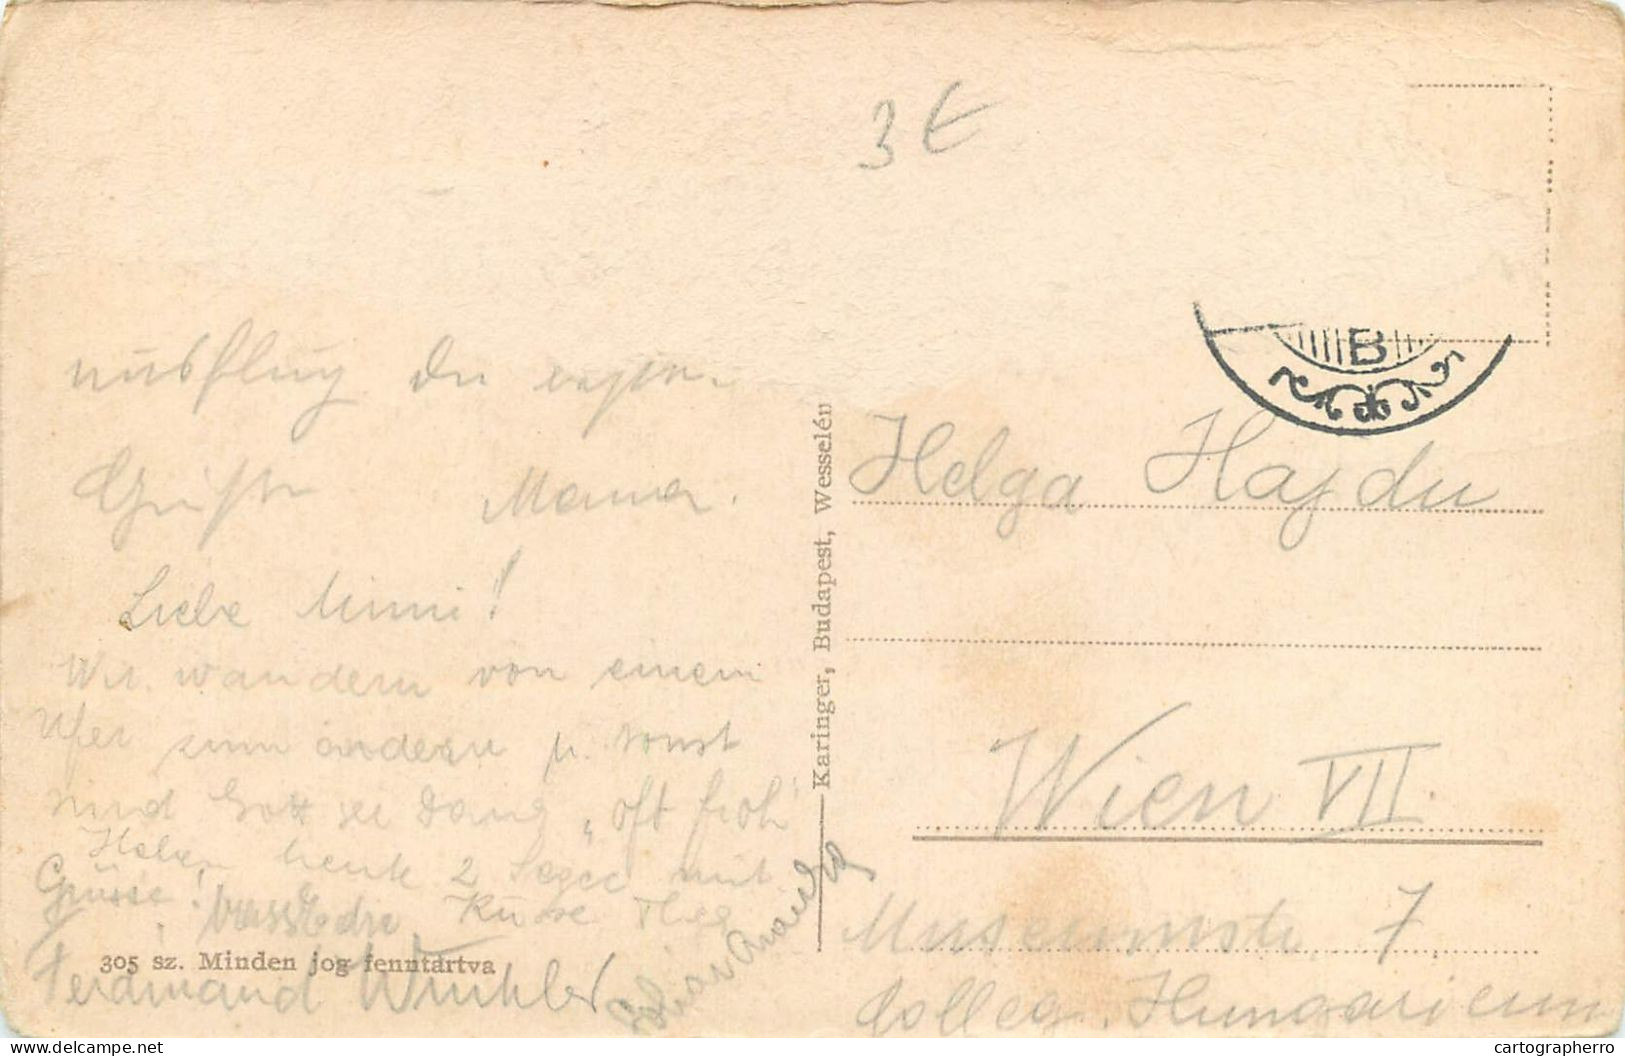 3 €
ausflug du
Mama.
Liebe Mimi!
Wir wandern von einem
Ufer zum andern u. sonst
sind Gott sei Dank „oft froh"
Haben heute 2 Segel mit
Grüsse! Küsse
Ferdinand Winkler
305 sz. Minden jog fenntartva
Karinger, Budapest, Wesselén
B
Helga Hajdu
Wien VII.
Museumstr. 7
Colleg. Hungaricum
delcampe.net
cartographerro